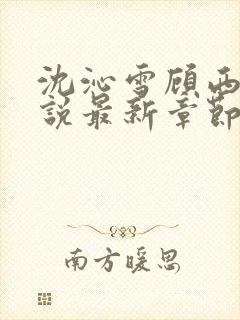 沈沁雪顾西
说最新章节
南方暖思